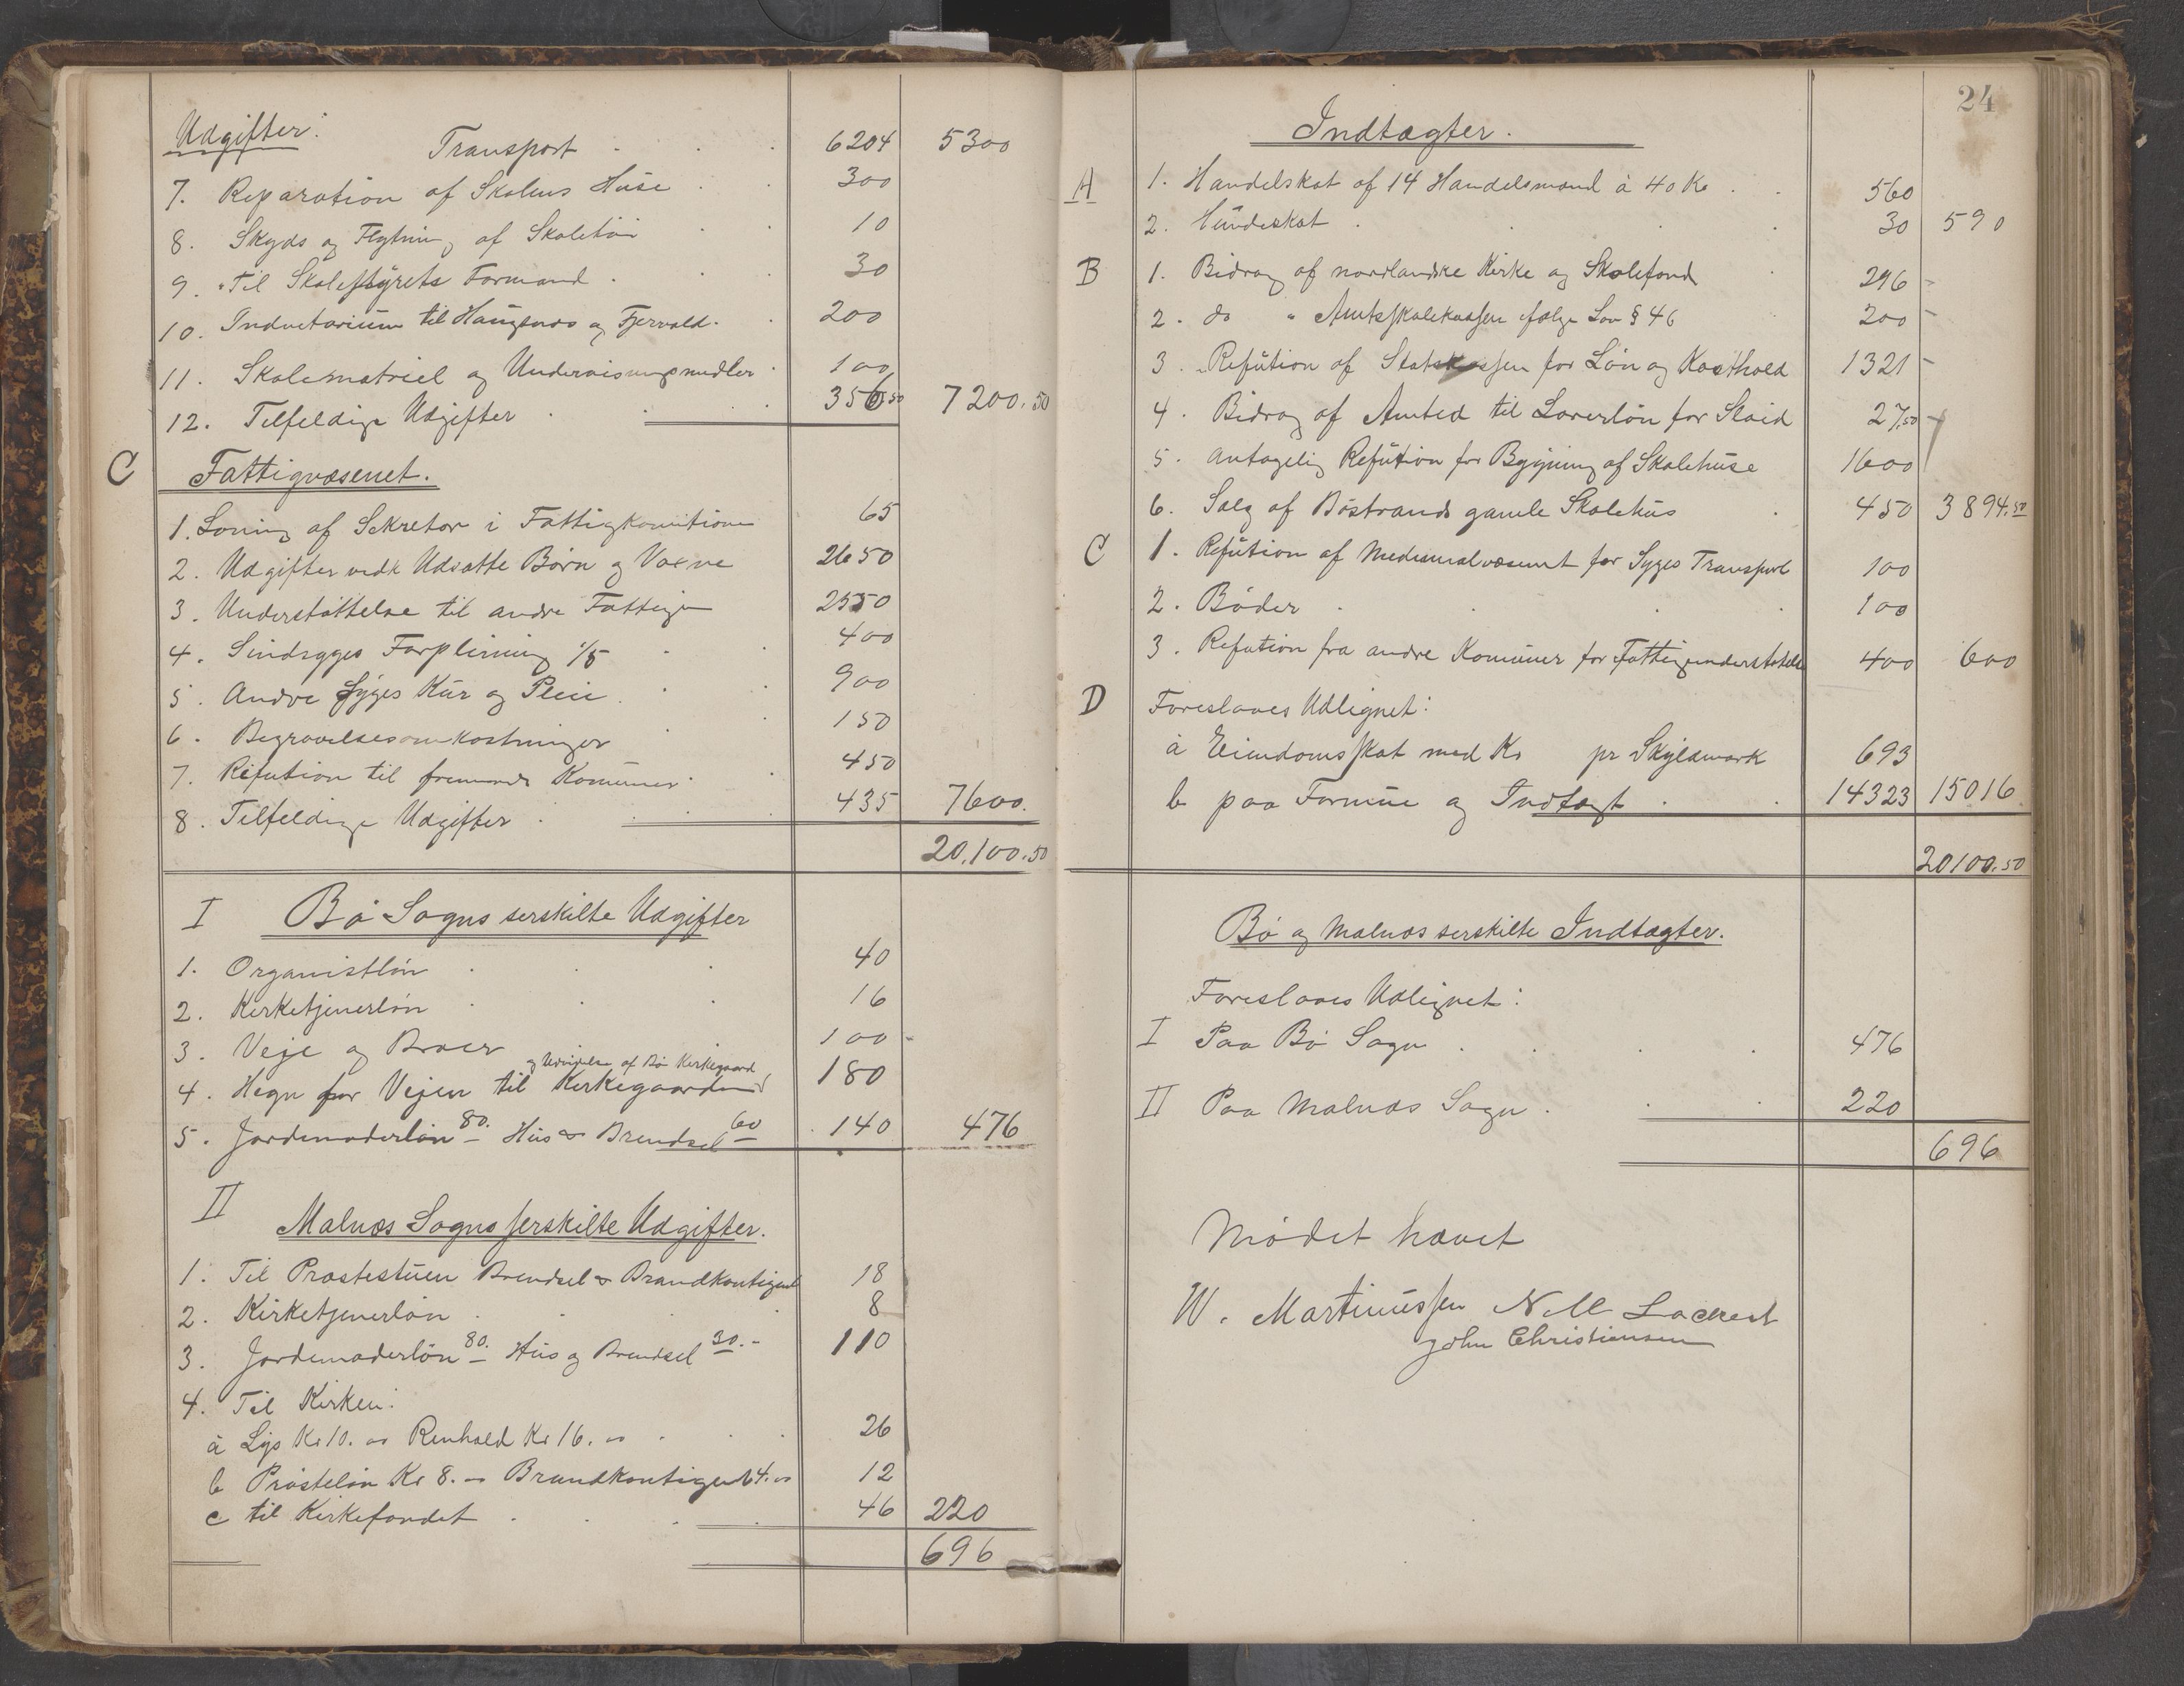 Udgifter:
Transport . . . 6204 5300
7. Reparation af Skolens Huse . . 300
8. Skyds og Flytning af Skoletöi . . 10
9. Til Skolestyrets Formand . . 30
10. Indvetarium til Haugsnes og Fjervold. . 200
11. Skolematriel og Undervisningsmidler . 100
12. Tilfeldige Udgifter . . . 356.50 7200.50
C Fattigvæsenet.
1. Löning af Sekretær i Fattigkomitionen 65
2. Udgifter vedk Udsatte Börn og Voxne 2650
3. Understöttelse til andre Fattige 2550
4. Sindsyges Forpleining 1/5 . 400
5. Andre Syges Kur og Pleie . . . 900
6. Begravelsesomkostninger . . 150
7. Refution til fremmede Komuner . . 450
8. Tilfeldige Udgifter . . . 435 7600.
20.100.50
I Bö Sogns serskilte Udgifter
1. Organistlön . . . 40
2. Kirketjenerlön . . . 16
3. Veje og Broer 100 -
og Udvidelse af Bö Kirkegaard
4. Hegn for Vejen til Kirkegaarden 180
5. Jordemoderlön 80. Hus & Brendsel 60 140 476
II
Malnæs Sogns serskilte Udgifter.
1. Til Præstestuen Brendsel & Brandkontigent 18
2. Kirketjenerlön . . . . 8
3. Jordemoderlön 80. Hus og Brendsel 30.- 110
4. Til Kirken:
a Lys Kr 10. " Renhold Kr 16. " . . . 26
b Pröstelön Kr 8. " Brandkontigent 4. " 12
c til Kirkefondet . . . 46 220
696
24
Indtægter.
A 1. Handelskat af 14 Handelsmænd à 40 Kr . . 560
2. Hundeskat . . . 30 590
B 1. Bidrag af nordlandske Kirke og Skolefond . 296 -
2. do " Amtsskolekassen følge Lov § 46 200 -
3. Refution af Statskassen for Lön og Kosthold 1321 -
4. Bidrag af Amted til Lærerlön for Slöid 27.50
5. Antagelig Refution for Bygning af Skolehuse 1600
6. Salg af Böstrands gamle Skolehus . 450 3894.50
C 1. Refution af Medicinalvæsenet for Syges Transport 100
2. Böder . . . . 100
3. Refution fra andre Komuner for Fattigunderstötelse 400 600
D Foreslaaes Udlignet:
a Eiendomsskat med Kr pr Skyldmark 693
b paa Formue og Indtægt . . 14323 15016
20100.50
Bö og Malnæs serskilte Indtægter.
Foreslaaes Udlignet:
I Paa Bö Sogn . . . . 476
II Paa Malnæs Sogn . . . 220
696
Mödet hævet
W. Martinussen N M
John Christiensen